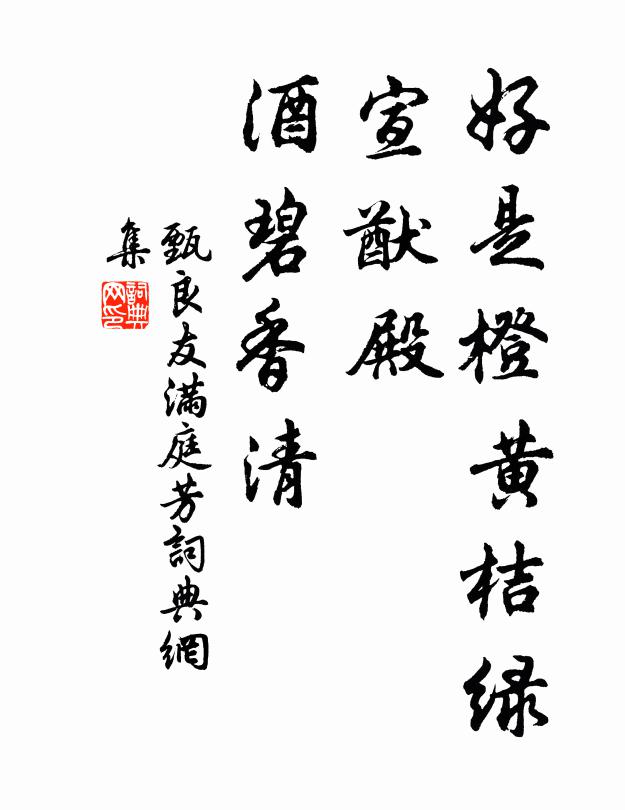 好是橙黄桔绿
宣猷殿
酒碧香清
甄良友满庭芳詞典網
集
詞典
网印